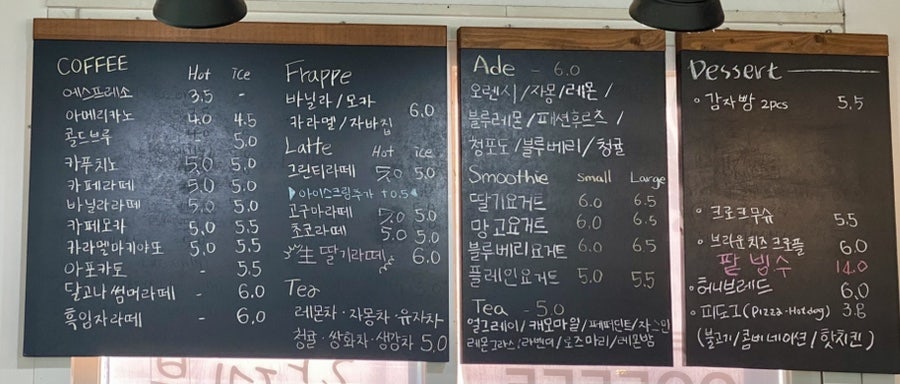 COFFEE Hot ice
에스프레소 3.5 -
아메리카노 4.0 4.5
콜드브루 - 5.0
카푸치노 5.0 5.0
카페라떼 5.0 5.0
바닐라라떼 5.0 5.0
카페모카 5.0 5.5
카라멜마키야또 5.0 5.5
아포카토 - 5.5
달고나 썸머라떼 - 6.0
흑임자라떼 - 6.0
Frappe
바닐라/모카
카라멜/자바칩 6.0
Latte Hot ice
그린티라떼 5.0 5.0
아이스크림추가 +0.5
고구마라떼 5.0 5.0
초코라떼 5.0 5.0
生 딸기라떼 6.0
Tea
레몬차·자몽차·유자차
청귤·쌍화차·생강차 5.0
Ade - 6.0
오렌지/자몽/레몬/
블루레몬/패션후르츠/
청포도/블루베리/청귤
Smoothie small Large
딸기요거트 6.0 6.5
망고요거트 6.0 6.5
블루베리요거트 6.0 6.5
플레인요거트 5.0 5.5
Tea - 5.0
얼그레이/캐모마일/페퍼민트/자스민
레몬그라스/라벤더/로즈마리/레몬밤
Dessert
감자빵 2pcs 5.5
크로크무슈 5.5
브라운치즈 크로플 6.0
팥빙수 14.0
허니브레드 6.0
피도그(Pizza·Hotdog) 3.8
(불고기/콤비네이션/핫치킨)